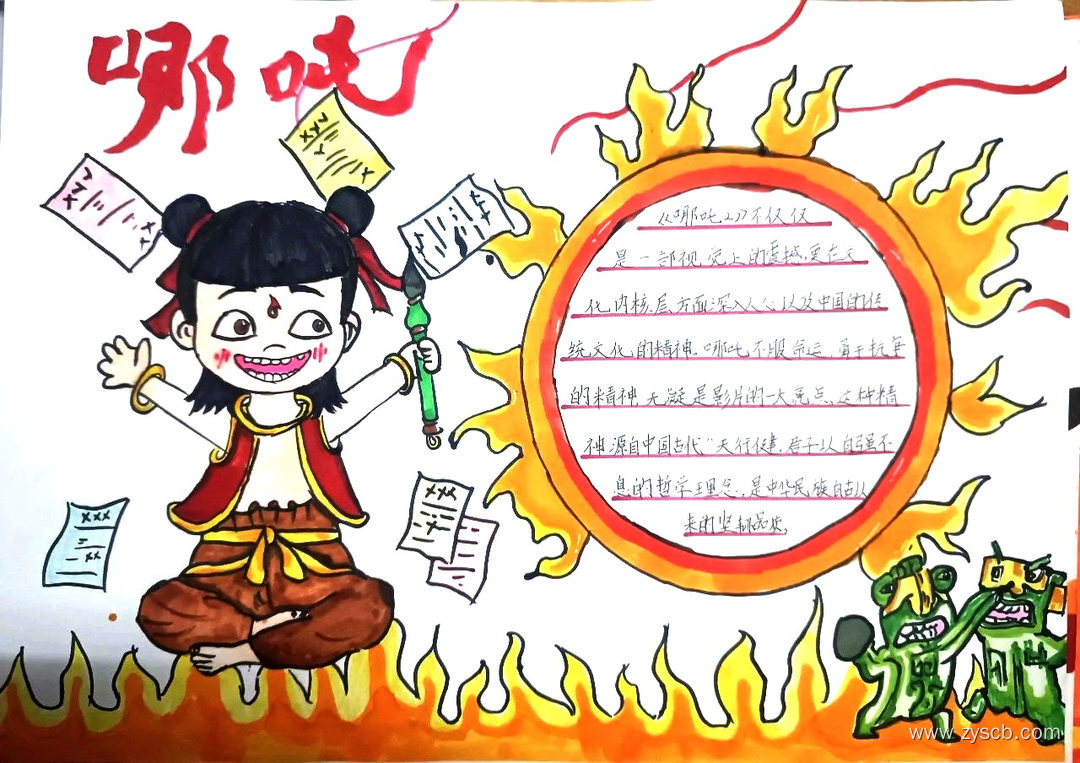 哪吒
《哪吒2》不仅仅
是一部视觉上的震撼,更在文
化内核层方面深入人心以及中国的传
统文化的精神。哪吒不服命运,勇于抗争
的精神,无疑是影片的一大亮点,这种精
神源自中国古代"天行健,君子以自强不
息的哲学理念,是中华民族自古以
来的坚韧品质。
www.zyscb.com